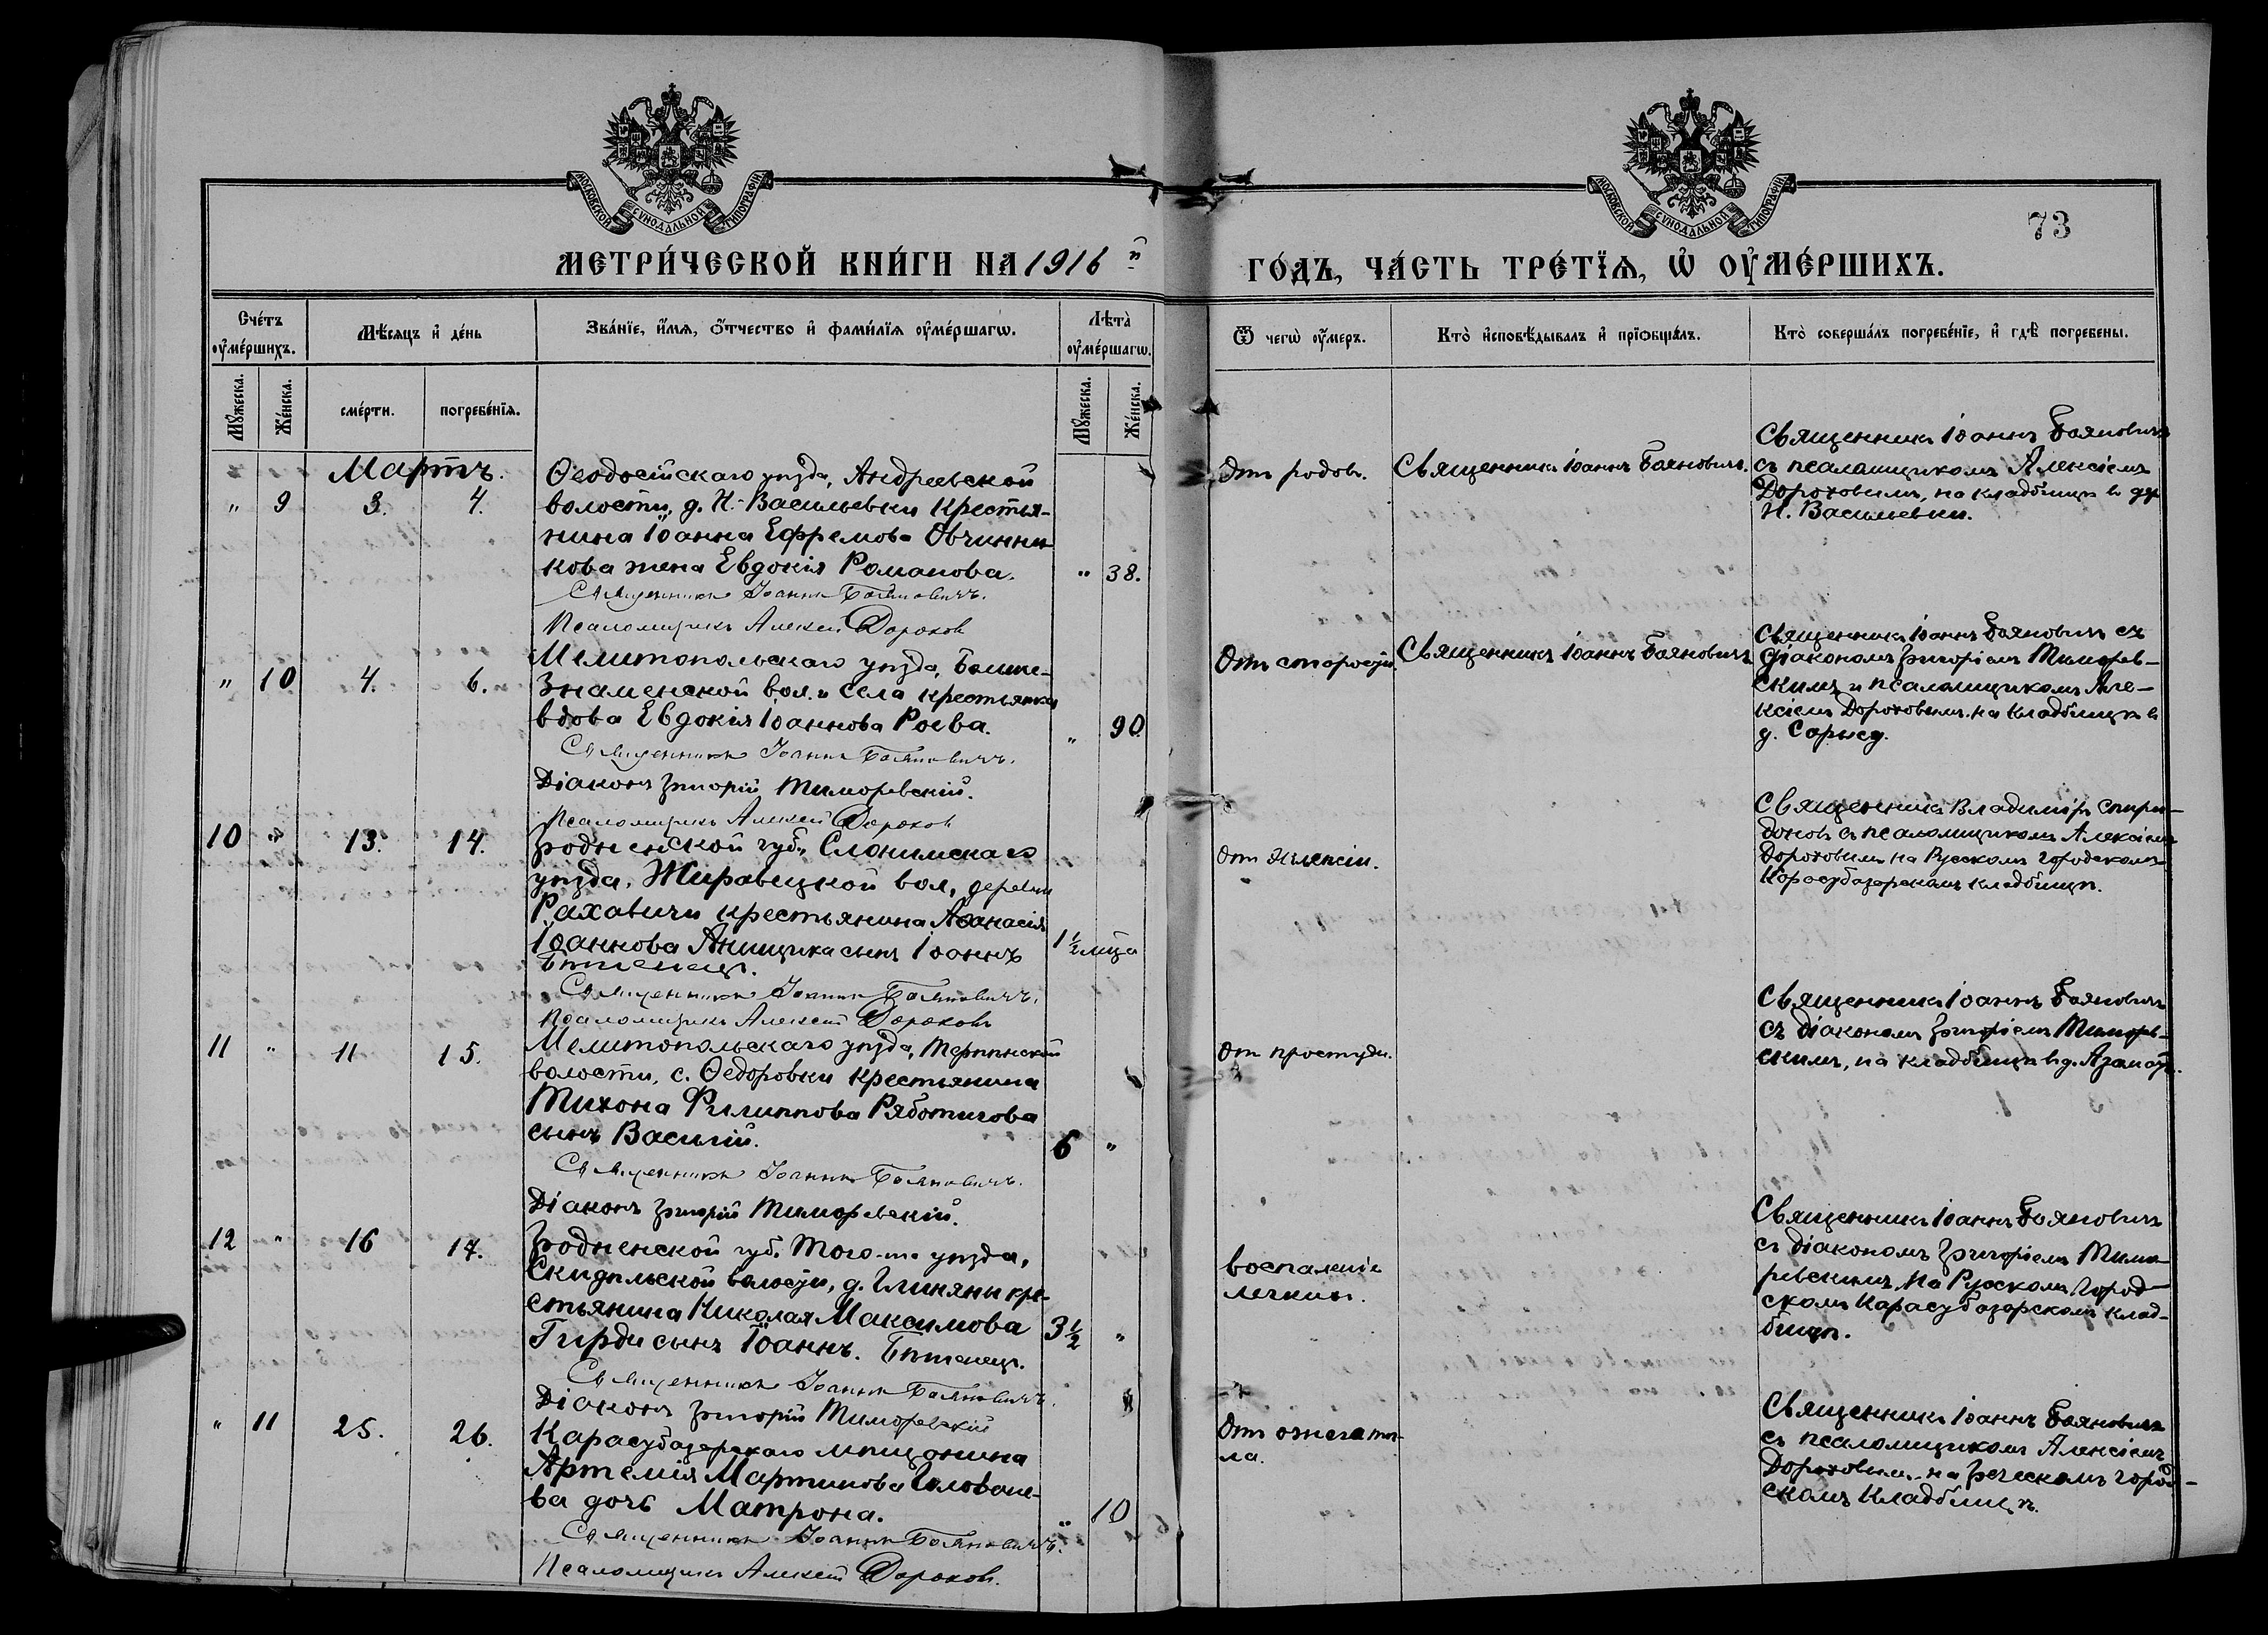 МОСКОВСКОЙ СѴНОДАЛЬНОЙ ТИПОГРАФІИ
МОСКОВСКОЙ СѴНОДАЛЬНОЙ ТИПОГРАФІИ
73
МЕТРИ́ЧЕСКОЙ КНИ́ГИ НА 1916 й
ГО́ДЪ, ЧА́СТЬ ТРЕ́ТІѦ, Ѡ҆ ОУ҆МЕ́РШИХЪ.
Сче́тъ оу҆ме́ршихъ.
Мѣ́сяцъ и҆ де́нь
Зва́ніе, и҆́мѧ, ѻ҆́тчество и҆ фами́лїѧ оу҆ме́ршагѡ.
Лѣ́та̀ оу҆ме́ршагѡ.
Ѿ чегѡ̀ оу҆́меръ.
Кто̀ и҆сповѣ́дывалъ и҆ прїѻбща́лъ.
Кто̀ соверша́лъ погребе́ніе, и҆ гдѣ̀ погребены.
Мꙋ́жеска.
Же́нска.
сме́рти.
погребе́нїѧ.
Мꙋ́жеска.
Же́нска.
Мартъ.
" 9 3. 4.
Ѳеодосійскаго уѣзда, Андреевской
волости, д. Н.-Васильевки крестья-
нина Іоанна Ефремова Овчинни-
кова жена Евдокія Романова.
" 38.
Священникъ Іоаннъ Бояновичъ.
Псаломщикъ Алексій Дорохов
Отъ родовъ.
Священникъ Іоаннъ Бояновичъ.
Священникъ Іоаннъ Бояновичъ
съ псаломщикомъ Алексіемъ
Дороховымъ, на кладбищѣ в дер
Н. Васильевки.
" 10 4. 6.
Мелитопольскаго уѣзда, Больше-
Знаменской вол. и села крестьянка
вдова Евдокія Іоаннова Роева.
" 90.
Священникъ Іоаннъ Бояновичъ.
Діаконъ Григорій Тиморевскій.
Псаломщикъ Алексій Дорохов
Отъ старости.
Священникъ Іоаннъ Бояновичъ
Священникъ Іоаннъ Бояновичъ съ
діакономъ Григоріемъ Тиморев-
скимъ и псаломщикомъ Але-
ксіемъ Дороховымъ. на кладбищѣ в
д.
10 " 13. 14.
Гродненской губ., Слонимскаго
уѣзда, Жировицкой вол., деревни
Рахавичи крестьянина Аѳанасія
Іоаннова Анищика сынъ Іоаннъ
бѣженецъ.
1½ мѣца
Священникъ Іоаннъ Бояновичъ.
Псаломщикъ Алексій Дороховъ
От
Священникъ Владиміръ Спири-
доновъ съ псаломщикомъ Алексіемъ
Дороховымъ на Русскомъ городскомъ
Карасубазарскомъ кладбищѣ.
11 " 11 15.
Мелитопольскаго уѣзда, Терпѣнской
волости, с. Ѳедоровки крестьянина
Тихона Филиппова Ряботягова
сынъ Василій.
6 "
Священникъ Іоаннъ Бояновичъ.
Діаконъ Григорій Тиморевскій.
От простуды.
Священникъ Іоаннъ Бояновичъ
съ діакономъ Григоріемъ Тиморев-
скимъ, на кладбищѣ в д. Азамат.
12 " 16 17.
Гродненской губ. Того-же уѣзда,
Скидельской волости, д. Глиняны кре-
стьянина Николая Максимова
Гирди сынъ Іоаннъ. Бѣженецъ.
3½ "
Священникъ Іоаннъ Бояновичъ.
Діаконъ Григорій Тиморевскій
воспаленіе
легкихъ.
Священникъ Іоаннъ Бояновичъ
съ діакономъ Григоріемъ Тимо-
ревскимъ на Русскомъ Город-
скомъ Карасубазарскомъ клад-
бищѣ.
" 11 25. 26.
Карасубазарскаго мѣщанина
Артемія Мартинова Головаче-
ва дочь Матрона.
" 10
Священникъ Іоаннъ Бояновичъ.
Псаломщикъ Алексій Дорохов.
Отъ
ла.
Священникъ Іоаннъ Бояновичъ
съ псаломщикомъ Алексіемъ
Дороховымъ на Греческомъ город-
скомъ кладбищѣ.